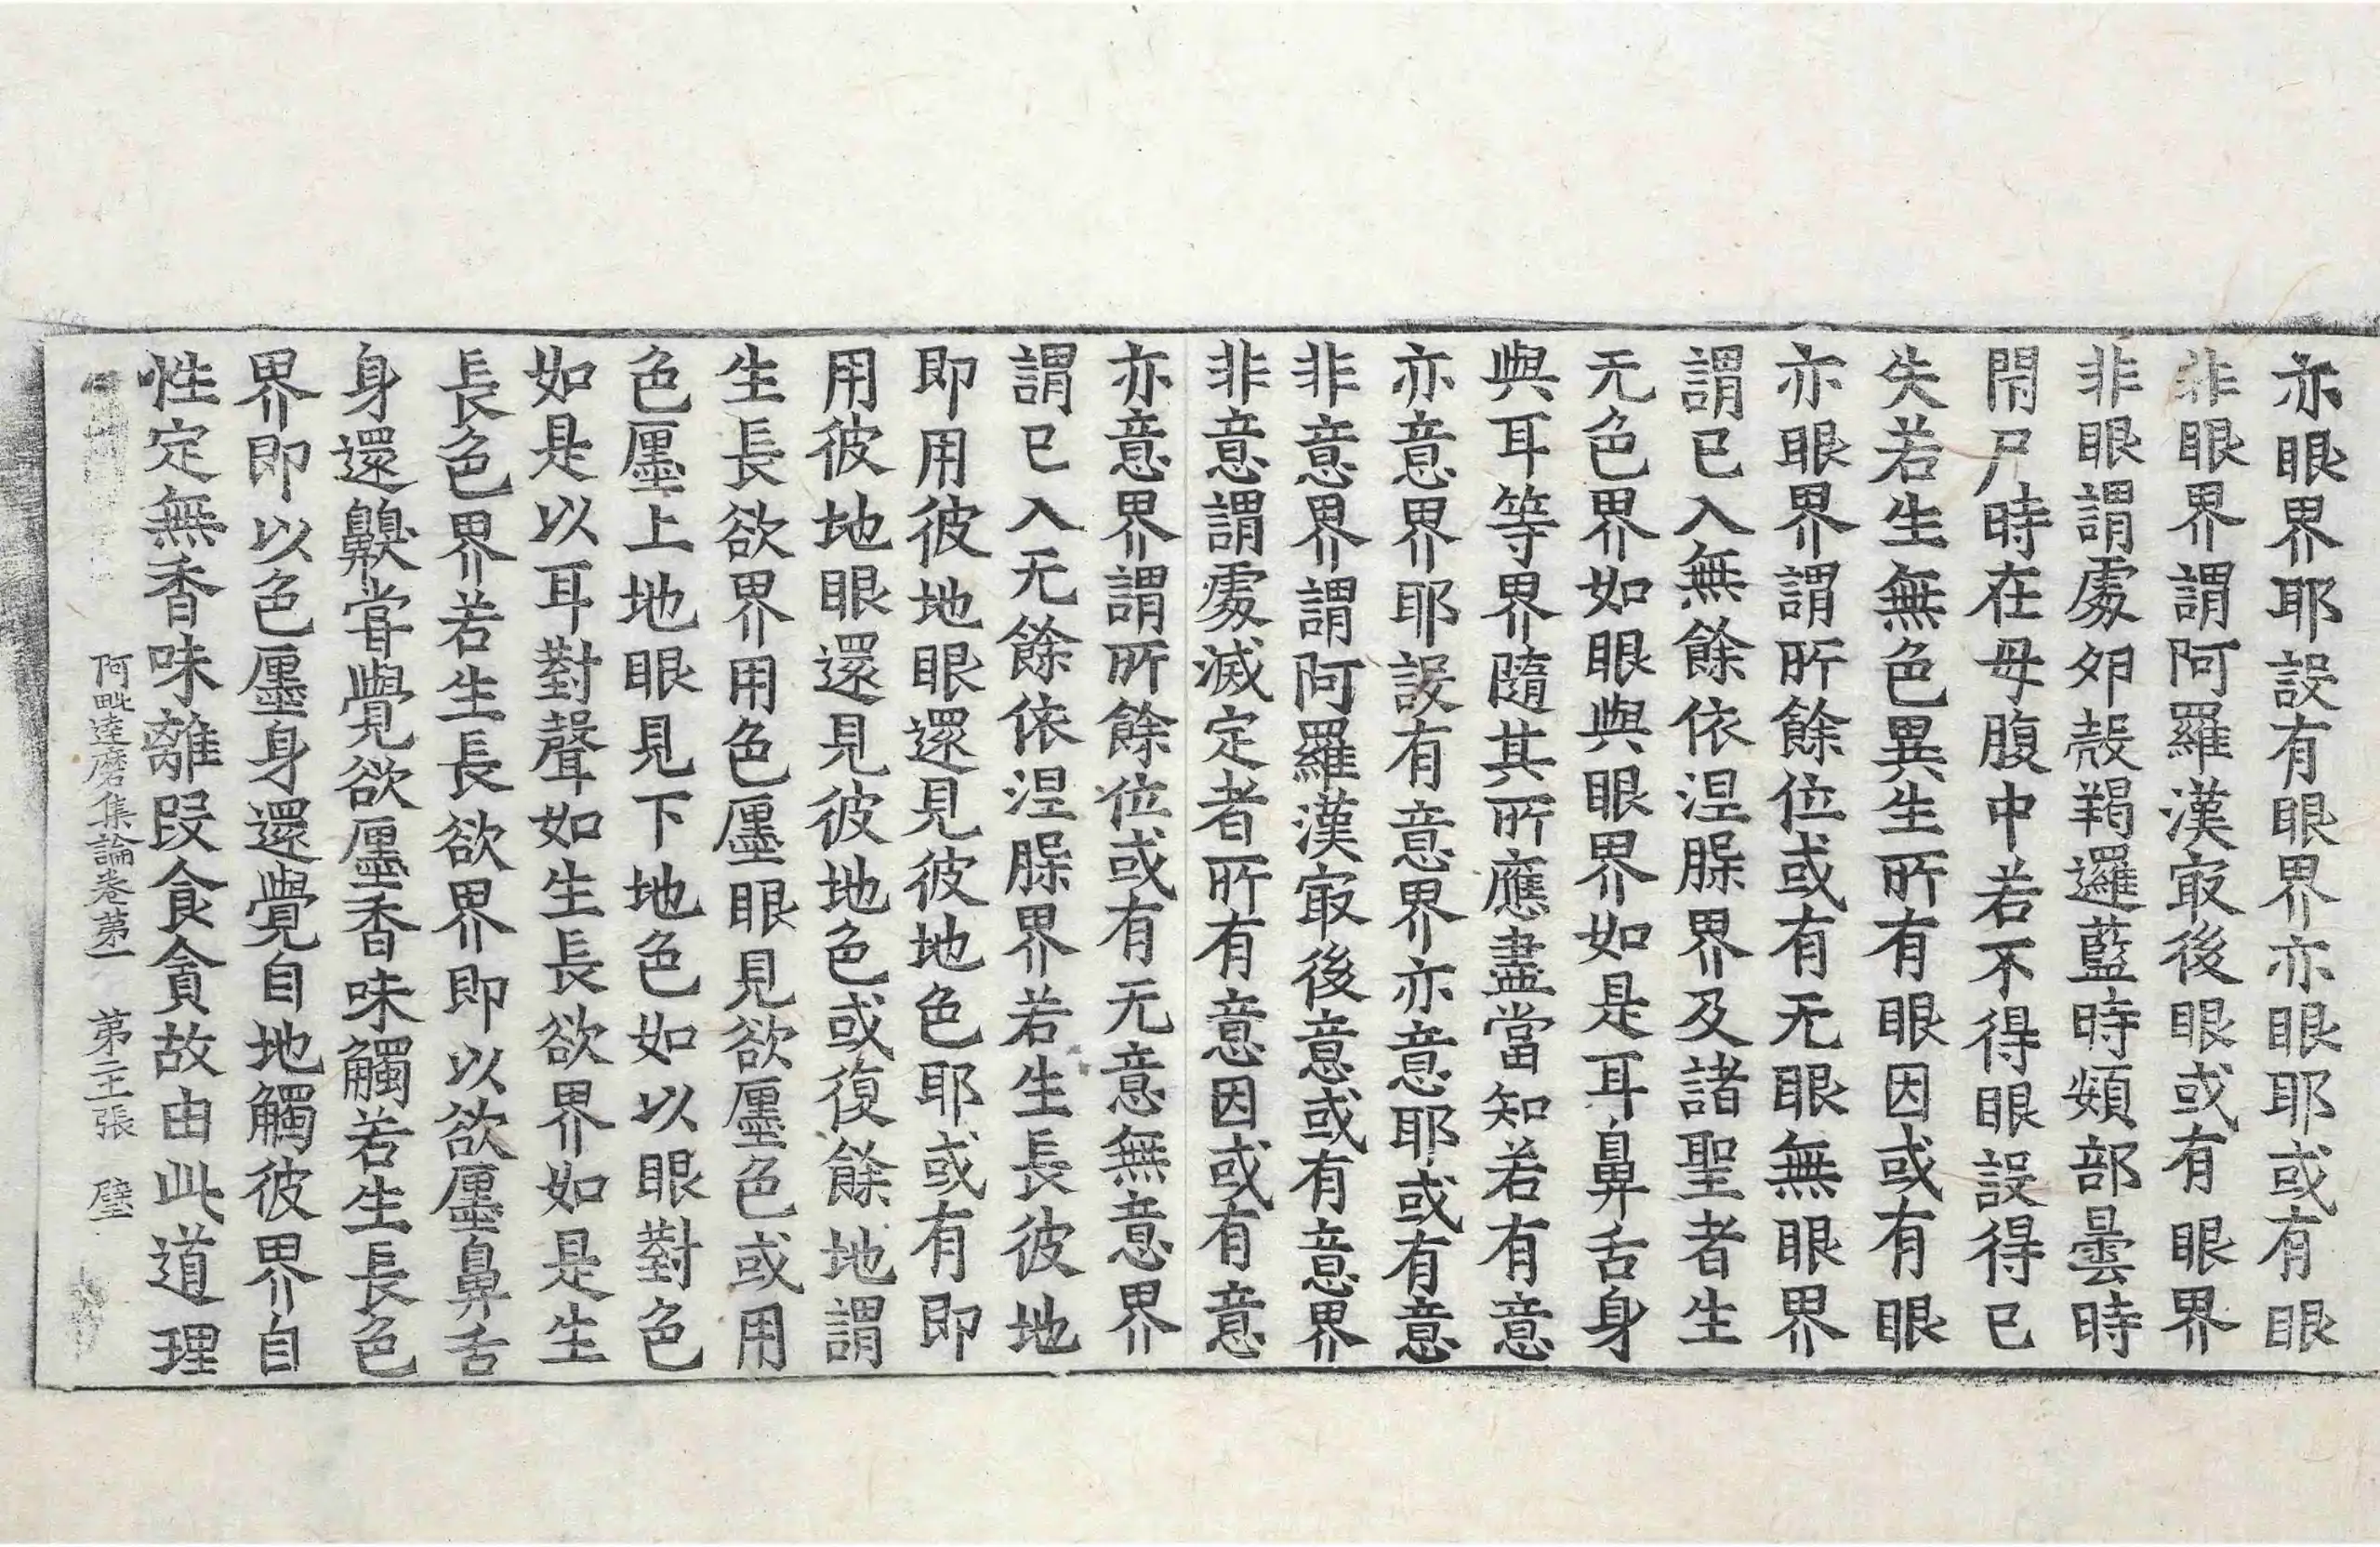 亦眼界耶設有眼界亦眼耶或有眼
非眼界謂阿羅漢㝡後眼或有眼界
非眼謂處夘殻羯邏藍時頞部曇時
閇尸時在母腹中若不得眼設得已
失若生無色異生所有眼因或有眼
亦眼界謂所餘位或有无眼無眼界
謂已入無餘依涅槃界及諸聖者生
无色界如眼與眼界如是耳鼻舌身
與耳等界隨其所應盡當知若有意
亦意界耶設有意界亦意耶或有意
非意界謂阿羅漢㝡後意或有意界
非意謂處滅定者所有意因或有意
亦意界謂所餘位或有无意無意界
謂已入无餘依涅槃界若生長彼地
即用彼地眼還見彼地色耶或有即
用彼地眼還見彼地色或復餘地謂
生長欲界用色㕓眼見欲㕓色或用
色㕓上地眼見下地色如以眼對色
如是以耳對聲如生長欲界如是生
長色界若生長欲界即以欲㕓鼻舌
身還齅甞覺欲㕓香味觸若生長色
界即以色㕓身還覺自地觸彼界自
性定無香味離段食貪故由此道理
阿毗達磨集論卷苐一 苐二王張 璧